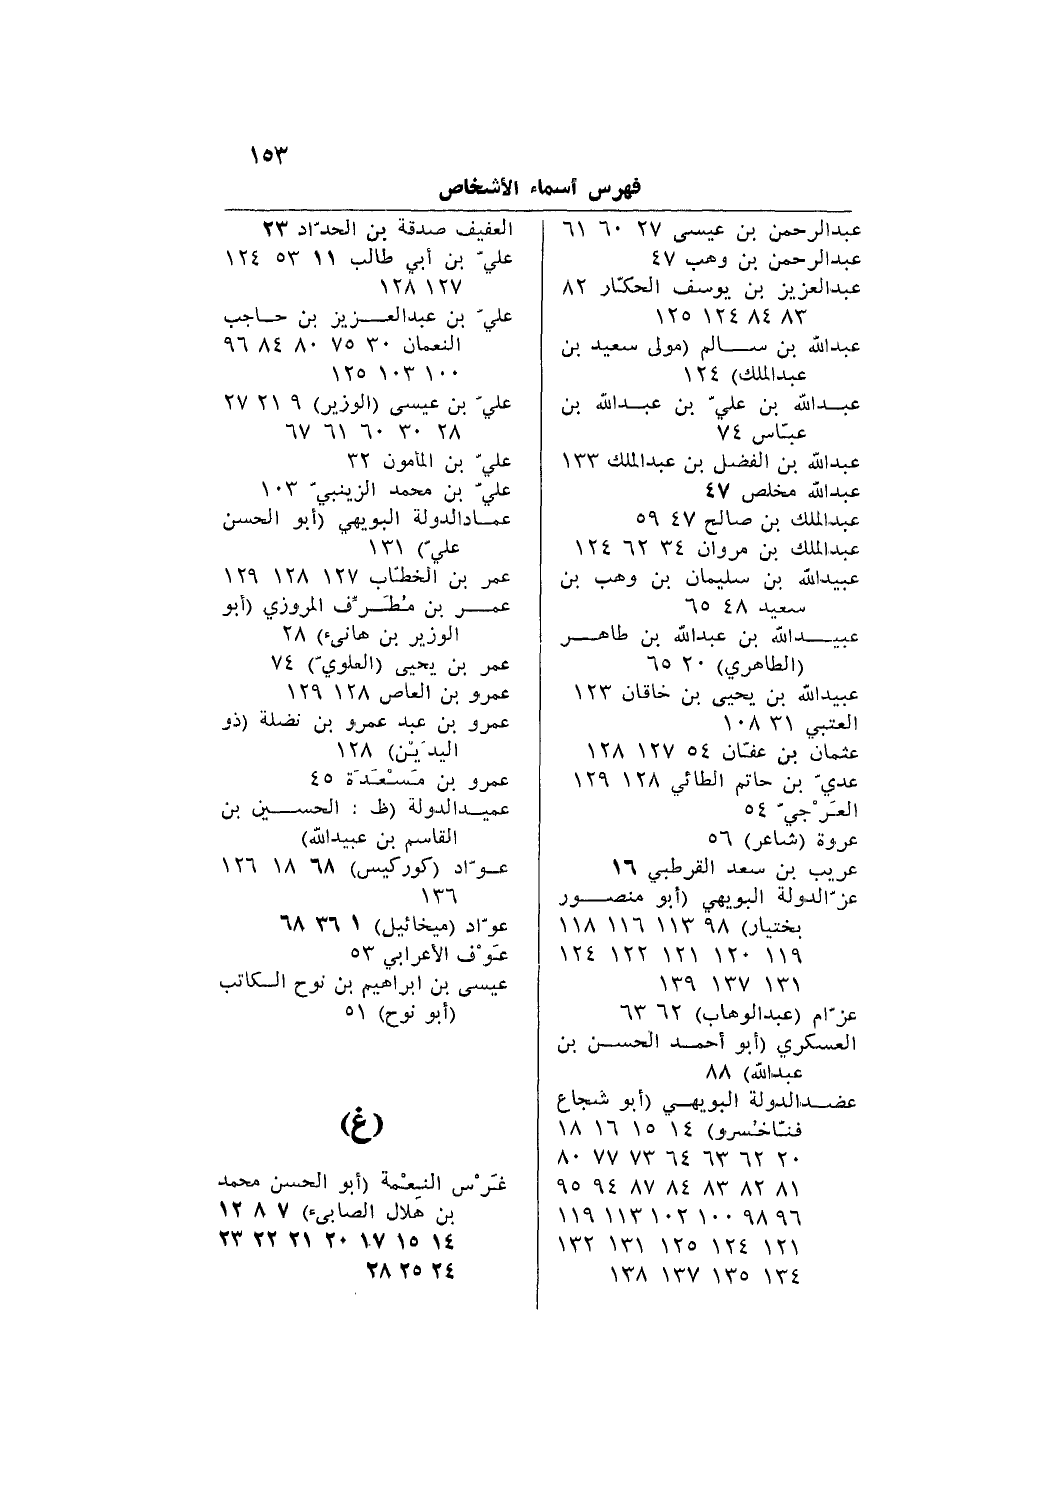 ١٥٣
فهرس أسماء الأشخاص
عبدالرحمن بن عيسى ٢٧ ٦٠ ٦١
عبدالرحمن بن وهب ٤٧
عبدالعزيز بن يوسف الحكّار ٨٢
٨٣ ٨٤ ١٢٤ ١٢٥
عبدالله بن سالم (مولى سعيد بن
عبدالملك) ١٢٤
عبدالله بن عليّ بن عبدالله بن
عبّاس ٧٤
عبدالله بن الفضل بن عبدالملك ١٣٣
عبدالله مخلص ٤٧
عبدالملك بن صالح ٤٧ ٥٩
عبدالملك بن مروان ٣٤ ٦٢ ١٢٤
عبيدالله بن سليمان بن وهب بن
سعيد ٤٨ ٦٥
عبيدالله بن عبدالله بن طاهر
(الطاهري) ٢٠ ٦٥
عبيدالله بن يحيى بن خاقان ١٢٣
العتبي ٣١ ١٠٨
عثمان بن عفّان ٥٤ ١٢٧ ١٢٨
عديّ بن حاتم الطائي ١٢٨ ١٢٩
العَرْجيّ ٥٤
عروة (شاعر) ٥٦
عريب بن سعد القرطبي ١٦
عزّالدولة البويهي (أبو منصور
بختيار) ٩٨ ١١٣ ١١٦ ١١٨
١١٩ ١٢٠ ١٢١ ١٢٢ ١٢٤
١٣١ ١٣٧ ١٣٩
عزّام (عبدالوهاب) ٦٢ ٦٣
العسكري (أبو أحمد الحسن بن
عبدالله) ٨٨
عضدالدولة البويهي (أبو شجاع
فنّاخُسرو) ١٤ ١٥ ١٦ ١٨
٢٠ ٦٢ ٦٣ ٦٤ ٧٣ ٧٧ ٨٠
٨١ ٨٢ ٨٣ ٨٤ ٨٧ ٩٤ ٩٥
٩٦ ٩٨ ١٠٠ ١٠٢ ١١٣ ١١٩
١٢١ ١٢٤ ١٢٥ ١٣١ ١٣٢
١٣٤ ١٣٥ ١٣٧ ١٣٨
العفيف صدقة بن الحدّاد ٢٣
عليّ بن أبي طالب ١١ ٥٣ ١٢٤
١٢٧ ١٢٨
عليّ بن عبدالعزيز بن حاجب
النعمان ٣٠ ٧٥ ٨٠ ٨٤ ٩٦
١٠٠ ١٠٣ ١٢٥
عليّ بن عيسى (الوزير) ٩ ٢١ ٢٧
٢٨ ٣٠ ٦٠ ٦١ ٦٧
عليّ بن المأمون ٣٢
عليّ بن محمد الزينبيّ ١٠٣
عمادالدولة البويهي (أبو الحسن
عليّ) ١٣١
عمر بن الخطّاب ١٢٧ ١٢٨ ١٢٩
عمر بن مُطَرِّف المروزي (أبو
الوزير بن هانىء) ٢٨
عمر بن يحيى (العلويّ) ٧٤
عمرو بن العاص ١٢٨ ١٢٩
عمرو بن عبد عمرو بن نضلة (ذو
اليدَيْن) ١٢٨
عمرو بن مَسْعَدَة ٤٥
عميدالدولة (ظ : الحسين بن
القاسم بن عبيدالله)
عوّاد (كوركيس) ٦٨ ١٨ ١٢٦
١٣٦
عوّاد (ميخائيل) ١ ٣٦ ٦٨
عَوْف الأعرابي ٥٣
عيسى بن ابراهيم بن نوح الكاتب
(أبو نوح) ٥١
(غ)
غَرْس النِعْمة (أبو الحسن محمد
بن هلال الصابىء) ٧ ٨ ١٢
١٤ ١٥ ١٧ ٢٠ ٢١ ٢٢ ٢٣
٢٤ ٢٥ ٢٨